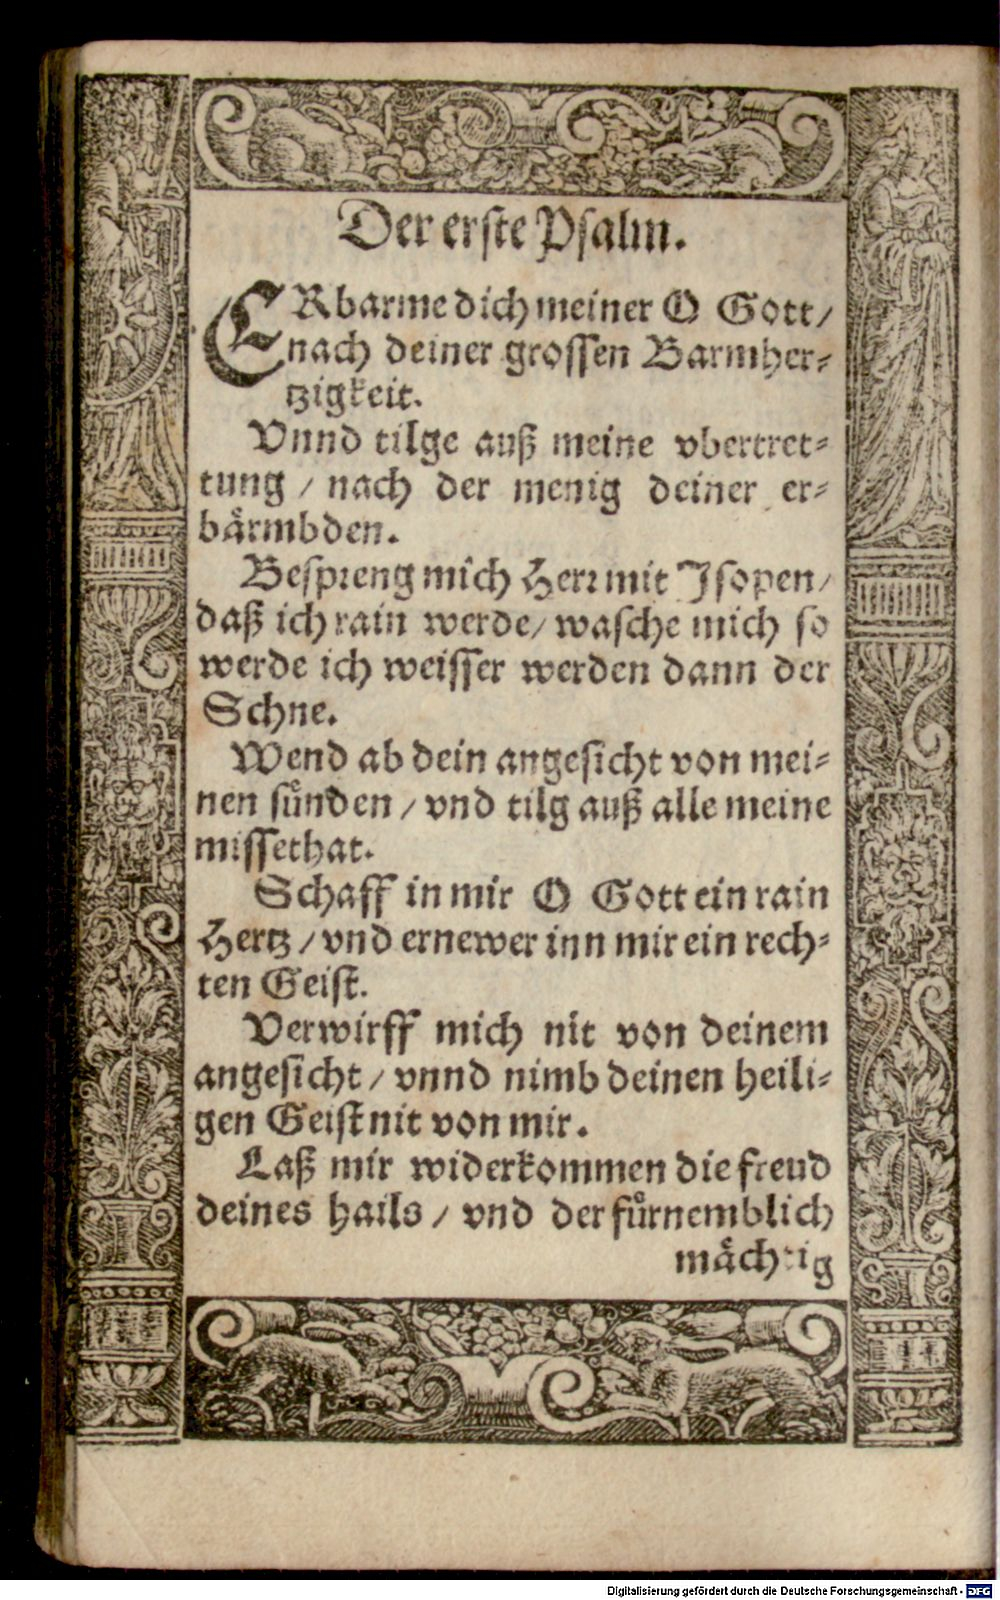 Der erste Psalm.
ERbarme dich meiner O Gott/
nach deiner grossen Barmher⸗
tzigkeit.
Vnnd tilge auß meine vbertret⸗
tung / nach der menig deiner er⸗
bärmbden.
Bespreng mich Herr mit Isopen/
daß ich rain werde/ wasche mich so
werde ich weisser werden dann der
Schne.
Wend ab dein angesicht von mei⸗
nen sünden / vnd tilg auß alle meine
missethat.
Schaff in mir O Gott ein rain
Hertz / vnd ernewer inn mir ein rech⸗
ten Geist.
Verwirff mich nit von deinem
angesicht / vnnd nimb deinen heili⸗
gen Geist nit von mir.
Laß mir widerkommen die freud
deines hails / vnd der fürnemblich
mächtig
Digitalisierung gefördert durch die Deutsche Forschungsgemeinschaft - DFG